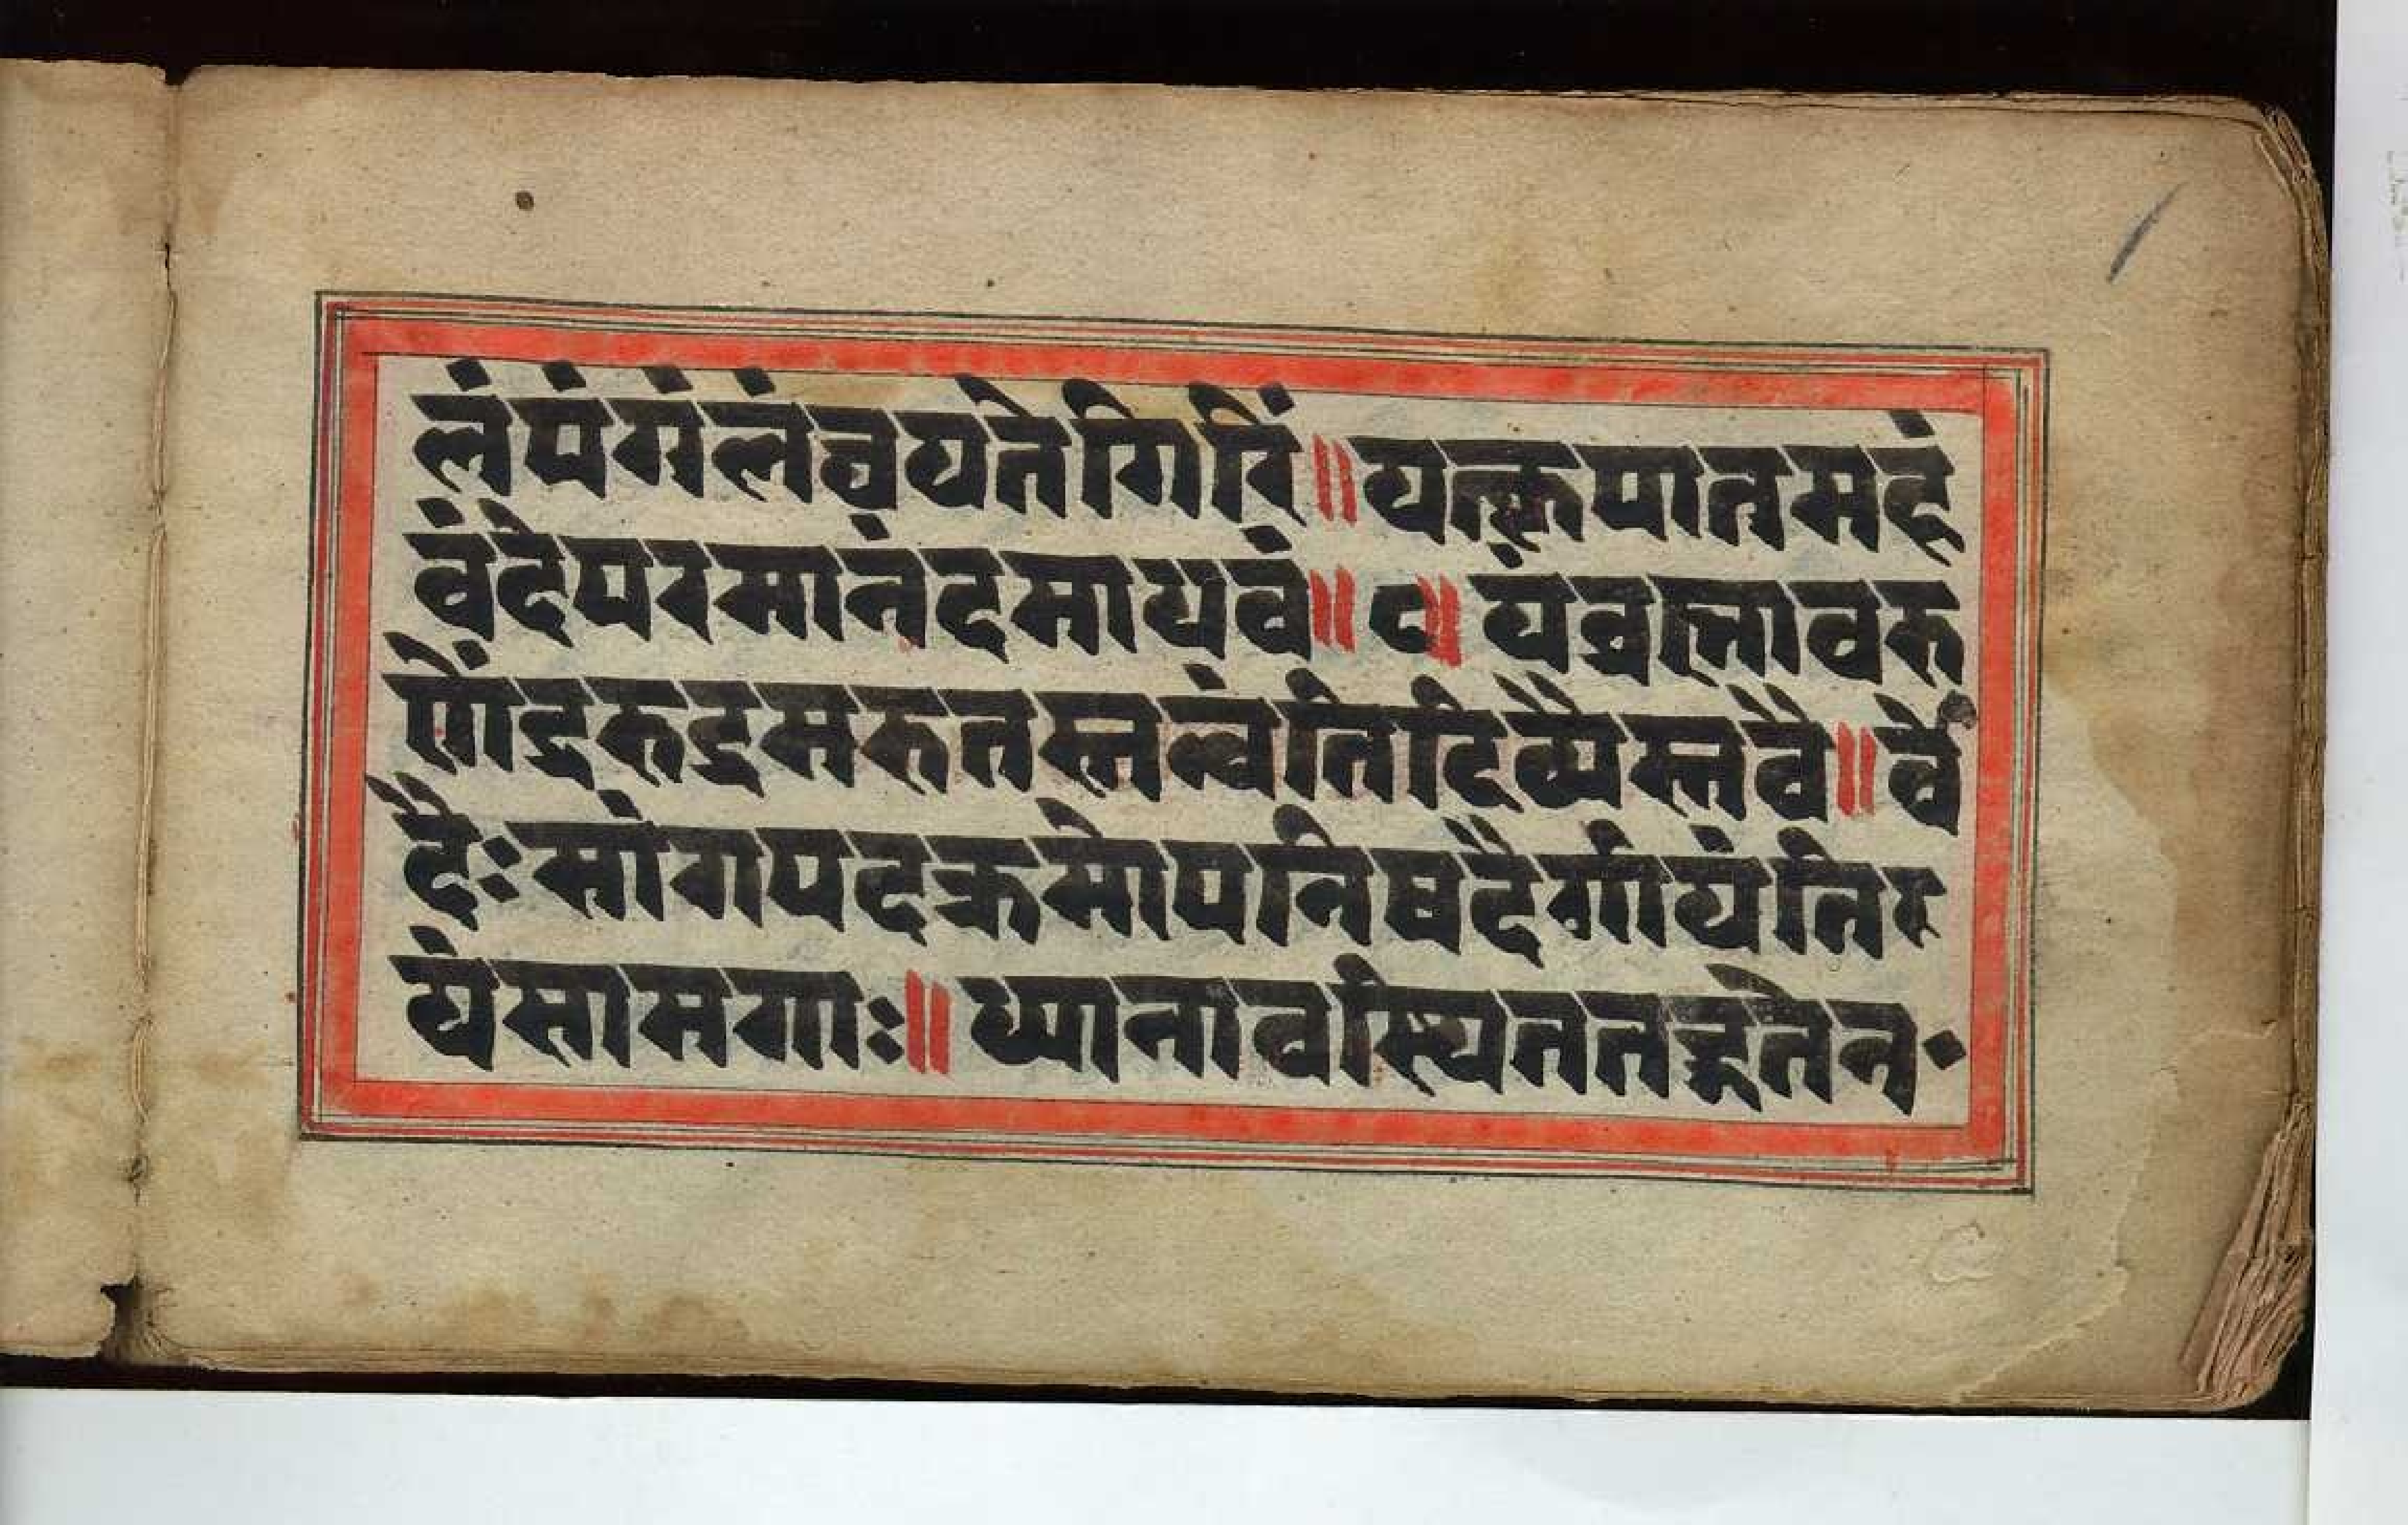 लंपंगंलंघयतेगिरिं॥यत्कृपातमहं
वंदेपरमानंदमाधवं॥८॥यंब्रह्मावरु
णेंद्ररुद्रमरुतस्तुन्वंतिदिव्यैस्तवै॥र्वे
दैःसांगपदक्रमोपनिषदैर्गायंति
यंसामगाः॥ध्यानावस्थिततद्गतेन